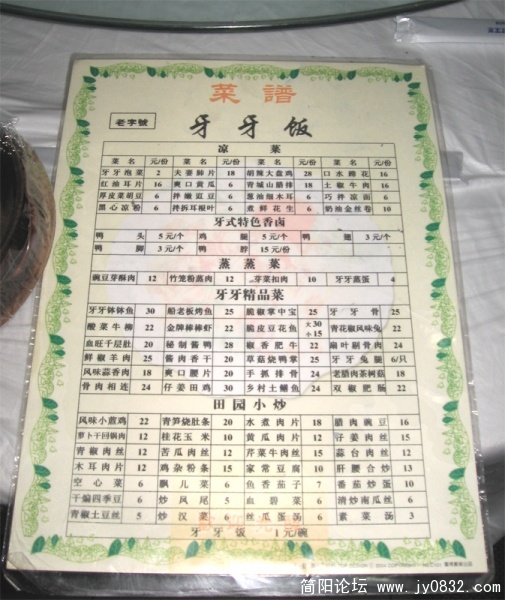 菜譜
老字號
牙牙饭
凉菜
菜名 元/份 菜名 元/份 菜名 元/份 菜名 元/份
牙牙泡菜 2 夫妻肺片 18 胡辣大盘鸡 28 口水蹄花 16
红油耳片 16 爽口黄瓜 6 青城山腊排 18 土椒牛肉 16
厚皮菜胡豆 6 拌嫩豇豆 6 葱油细木耳 6 巧拌凉面 6
黑心凉粉 6 拌折耳根叶 6 煮鲜花生 6 奶油金丝卷 10
牙式特色香卤
鸭头 5元/个 鸡腿 5元/个 鸭翅 3元/个
鸭脚 3元/个 鸭脖 15元/份
蒸蒸菜
豌豆芽酥肉 12 竹笼粉蒸肉 12 芽菜扣肉 10 牙牙蒸蛋 4
牙牙精品菜
牙牙钵钵鱼 30 船老板烤鱼 25 脆椒掌中宝 25 牙牙骨 25
酸菜牛柳 22 金牌棒棒虾 22 脆皮豆花鱼 大30 小15 青花椒风味兔 22
血旺千层肚 20 秘制酱鸭 28 椒香肥牛 22 扇叶剔骨肉 24
鲜椒羊肉 25 酱肉香干 20 草菇烧鸭掌 25 牙牙兔腿 6/只
风味蒜香肉 18 爽口腰片 20 手抓排骨 24 老腊肉茶树菇 18
骨肉相连 24 仔姜田鸡 30 乡村土鳝鱼 24 双椒肥肠 22
田园小炒
风味小煎鸡 22 青笋烧肚条 20 水煮肉片 18 腊肉豌豆 16
萝卜干回锅肉 12 桂花玉米 10 黄瓜肉片 12 仔姜肉丝 15
青椒肉丝 12 苦瓜肉丝 12 芹菜牛肉丝 15 蒜台肉丝 12
木耳肉片 12 鸡杂粉条 15 家常豆腐 10 肝腰合炒 13
空心菜 6 飘儿菜 6 鱼香茄子 7 番茄炒蛋 10
干煸四季豆 6 炒凤尾 5 血碧菜 6 清炒南瓜丝 6
青椒土豆丝 5 炒汉菜 6 丝瓜蛋汤 6 素菜汤 3
牙牙饭 1元/碗
简阳论坛 www.jy0832.com